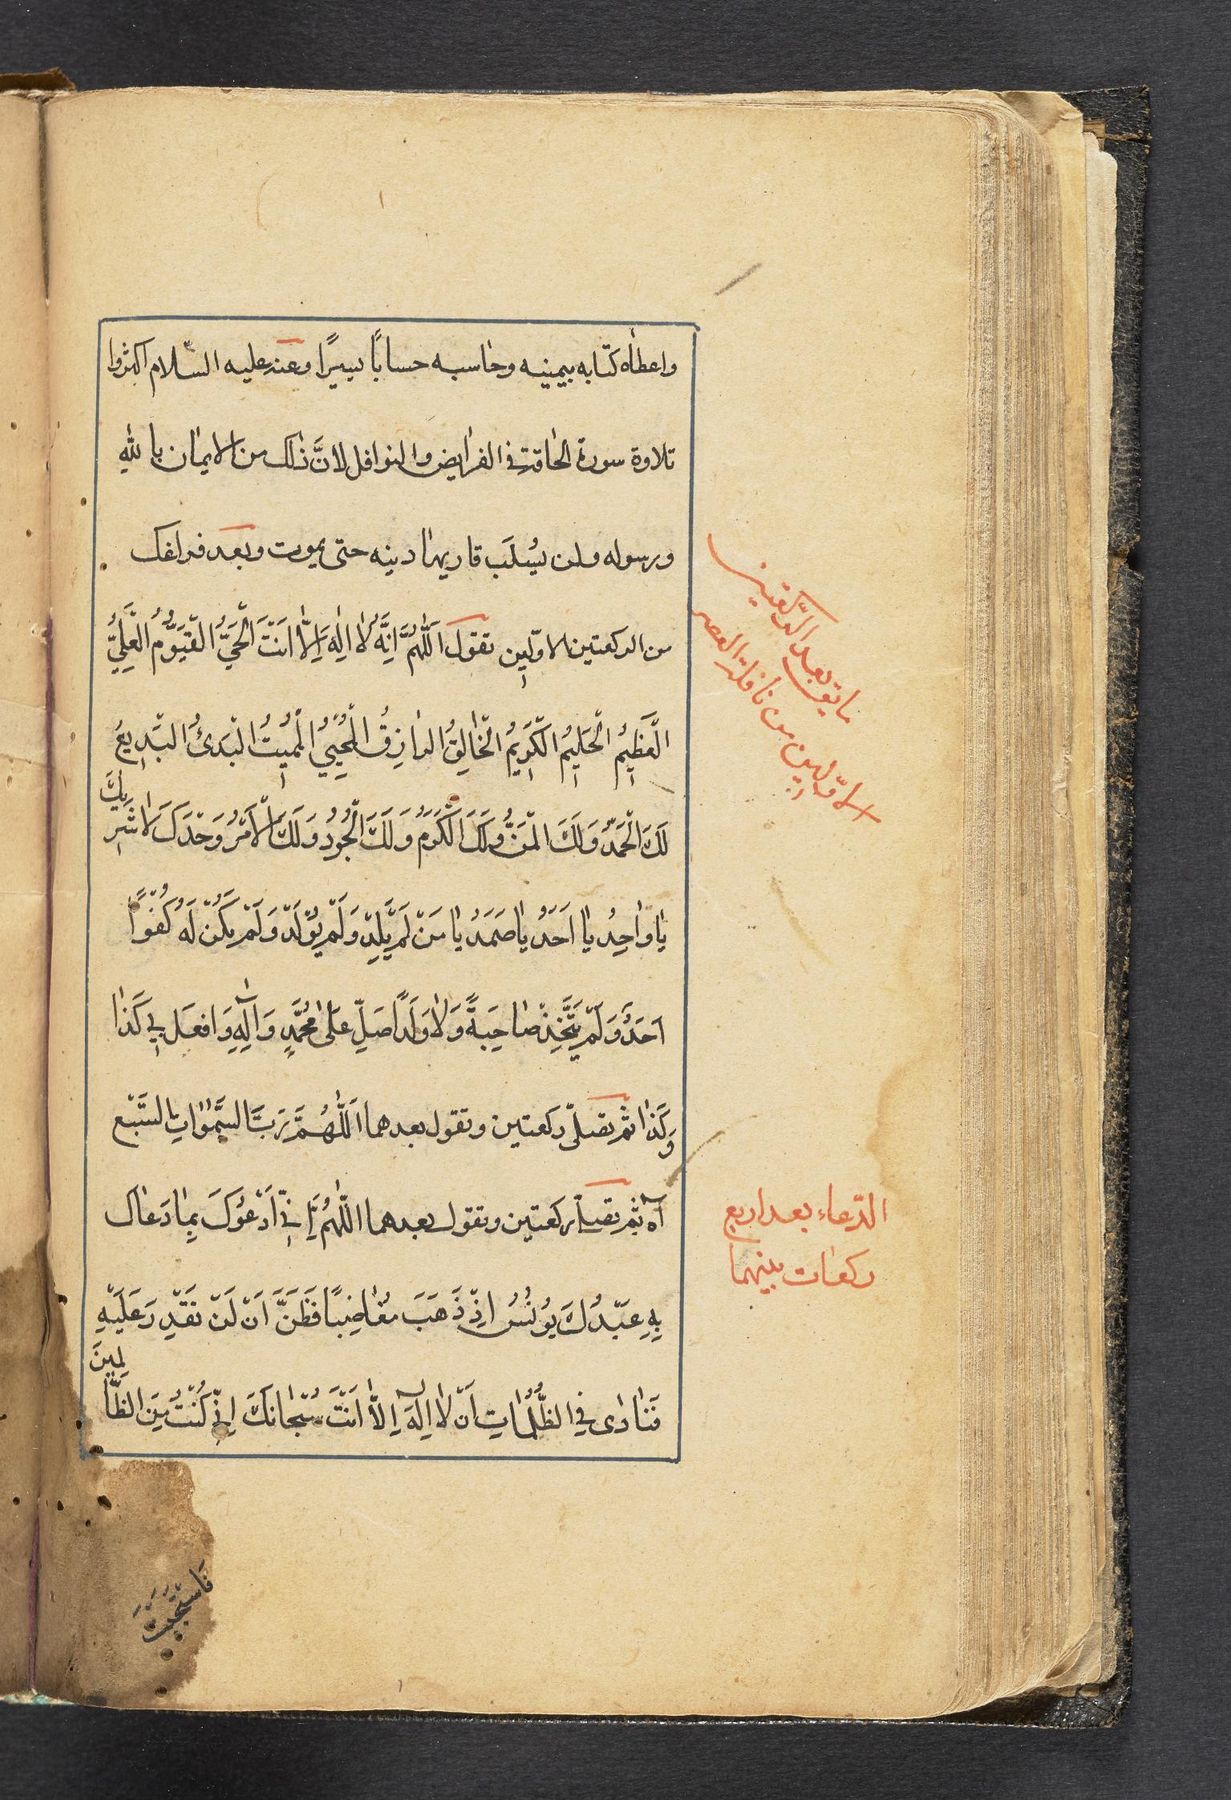 واعطاه كتابه بيمينه وحاسبه حسابًا يسيرًا وعنه عليه السلام اكثروا
تلاوة سورة الحاقة فى الفرايض والنوافل لانَّ ذلك من الايمان باللهِ
ورسوله ولن يسُلَب قاريها دينه حتى يموت وبعد فراغك
من الركعتين الاولّيين تقول اَللّٰهُمَّ اِنَّهُ لَا اِلٰهَ اِلَّا اَنْتَ الْحَيُّ الْقَيُّومُ الْعَلِيُّ
الْعَظِيمُ الْحَلِيمُ الْكَرِيمُ الْخَالِقُ الرَازِقُ الْمُحْيِيُ الْمُمِيتُ الْبَدِئُ الْبَدِيعُ
لَكَ الْحَمْدُ وَلَكَ الْمَنُّ وَلَكَ الْكَرَمُ وَلَكَ الْجُودُ وَلَكَ الْاَمْرُ وَحْدَكَ لَا شَرِيكَ
يَا وَاحِدُ يَا اَحَدُ يَا صَمَدُ يَا مَنْ لَمْ يَلِدْ وَلَمْ يُوْلَدْ وَلَمْ يَكُنْ لَهُ كُفُوًا
اَحَدٌ وَلَمْ يَتَّخِذْ صَاحِبَةً وَلَا وَلَدًا صَلِّ عَلَىٰ مُحَمَّدٍ وَآلِهِ وَافعَل بِي كَذَا
وَكَذَا ثم تصلّى ركعتين وتقول بعدهما اَللّٰهُمَّ رَبَّ السَّمٰوَاتِ السَّبْعِ
آه ثم تصلى ركعتين وتقول بعدهما اللّٰهُمَّ اِنِّي اَدْعُوكَ بِمَا دَعَاكَ
بِهِ عَبْدُكَ يُونُسُ اِذْ ذَهَبَ مُغَاضِبًا فَظَنَّ اَنْ لَنْ نَقْدِرَ عَلَيْهِ
فَنَادَى فِي الظُّلُمَاتِ اَنْ لَا اِلَهَ اِلَّا اَنْتَ سُبْحَانَكَ اِنِّي كُنْتُ مِنَ الظَّالِمِينَ
ما يق بعد الرَّكعتين
الاوّليين من نافلة العصر
الدّعاء بعد اربع
ركعات بينهما
فَاسْتَجَبْتَ